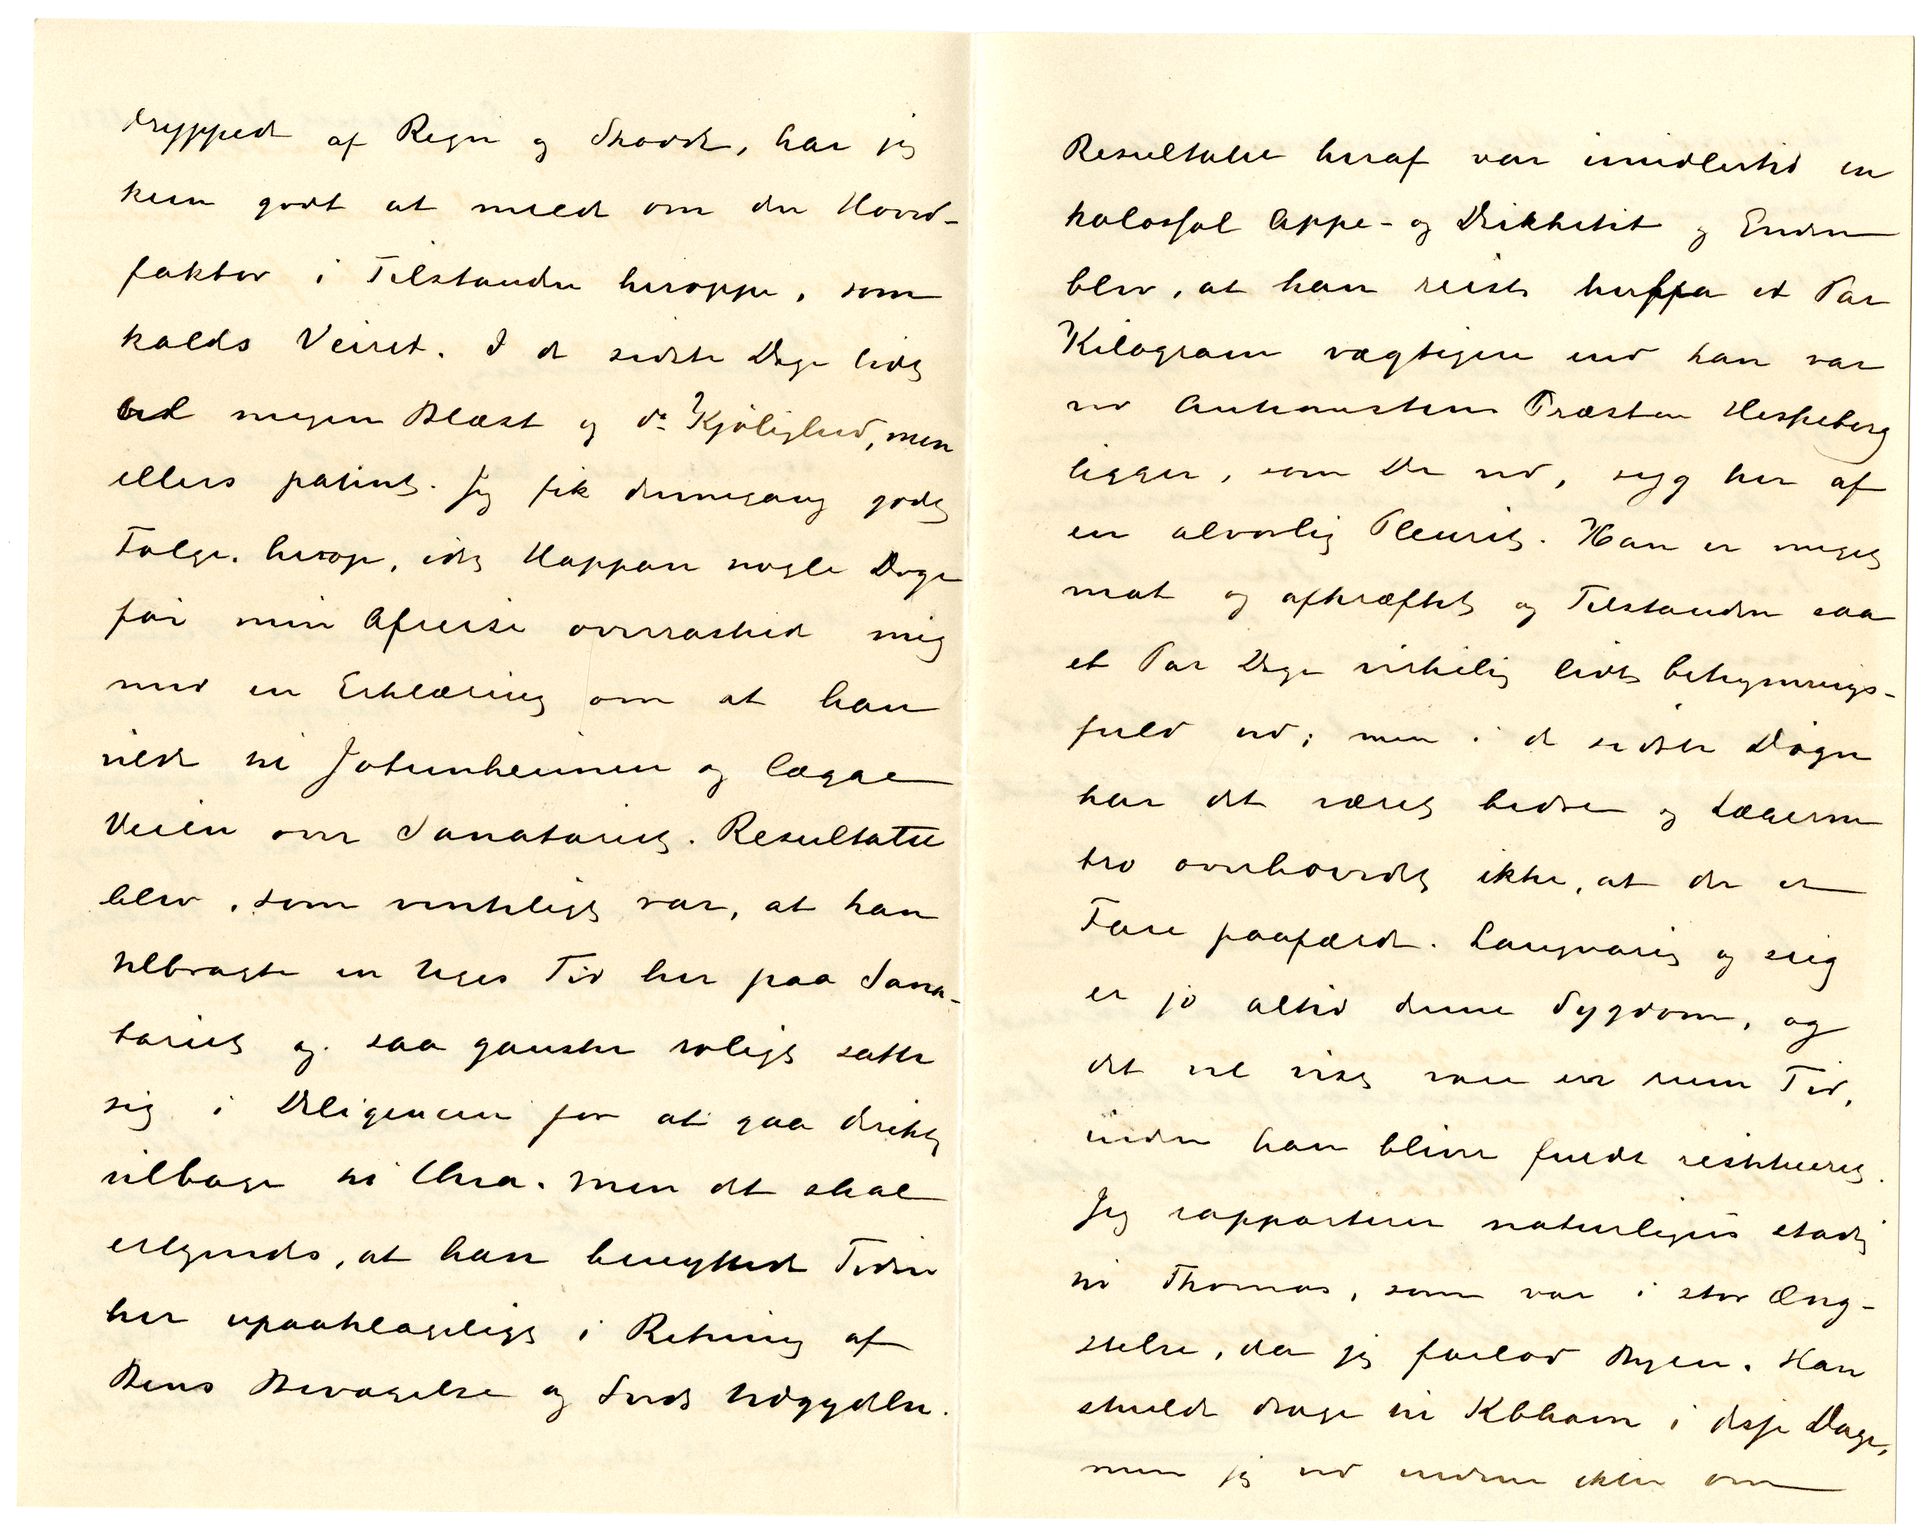 dryppede af Regn og Skodde, har jeg
kun godt at melde om den Hoved-
faktor i Tilstanden heroppe, som
kaldes Veiret. I de sidste Dage lidt
megen Blæst og do Kjølighed, men
ellers patent. Jeg fik dennegang godt
Følge herop, idet Happen nogle Dage
før min Afreise overraskede mig
med en Erklæring om at han
vilde til Jotunheimen og lægge
Veien om Sanatoriet. Resultatet
blev, som ventelig var, at han
tilbragte en Uges Tid her paa Sana-
toriet og saa ganske roligt satte
sig i Diligencen for at gaa direkte
tilbage til Chra. Men det skal
erkjendes, at han benyttede Tiden
her upaaklageligt i Retning af
Bens Bevægelse og Sveds Udgydelse.
Resultatet heraf var imidlertid en
kolossal Appe- og Drikketit og Enden
blev, at han reiste herfra et Par
Kilogram vægtigere end han var
ved Ankomsten. Præsten Heskeberg
ligger, som De ved, syg her af
en alvorlig Pleurit. Han er meget
mat og afkræftet og Tilstanden saa
et Par Dage virkelig lidt bekymrings-
fuld ud; men i de sidste Døgn
har det været bedre og Lægerne
tro overhovedet ikke, at der er
Fare paafærde. Langvarig og seig
er jo altid denne Sygdom, og
det vil vist vare en rum Tid,
inden han bliver fuldt restitueret.
Jeg rapporterer naturligvis stadig
til Thomas, som var i stor Æng-
stelse, da jeg forlod Byen. Han
skulde drage til Kbhavn i disse Dage,
men jeg ved endnu ikke om